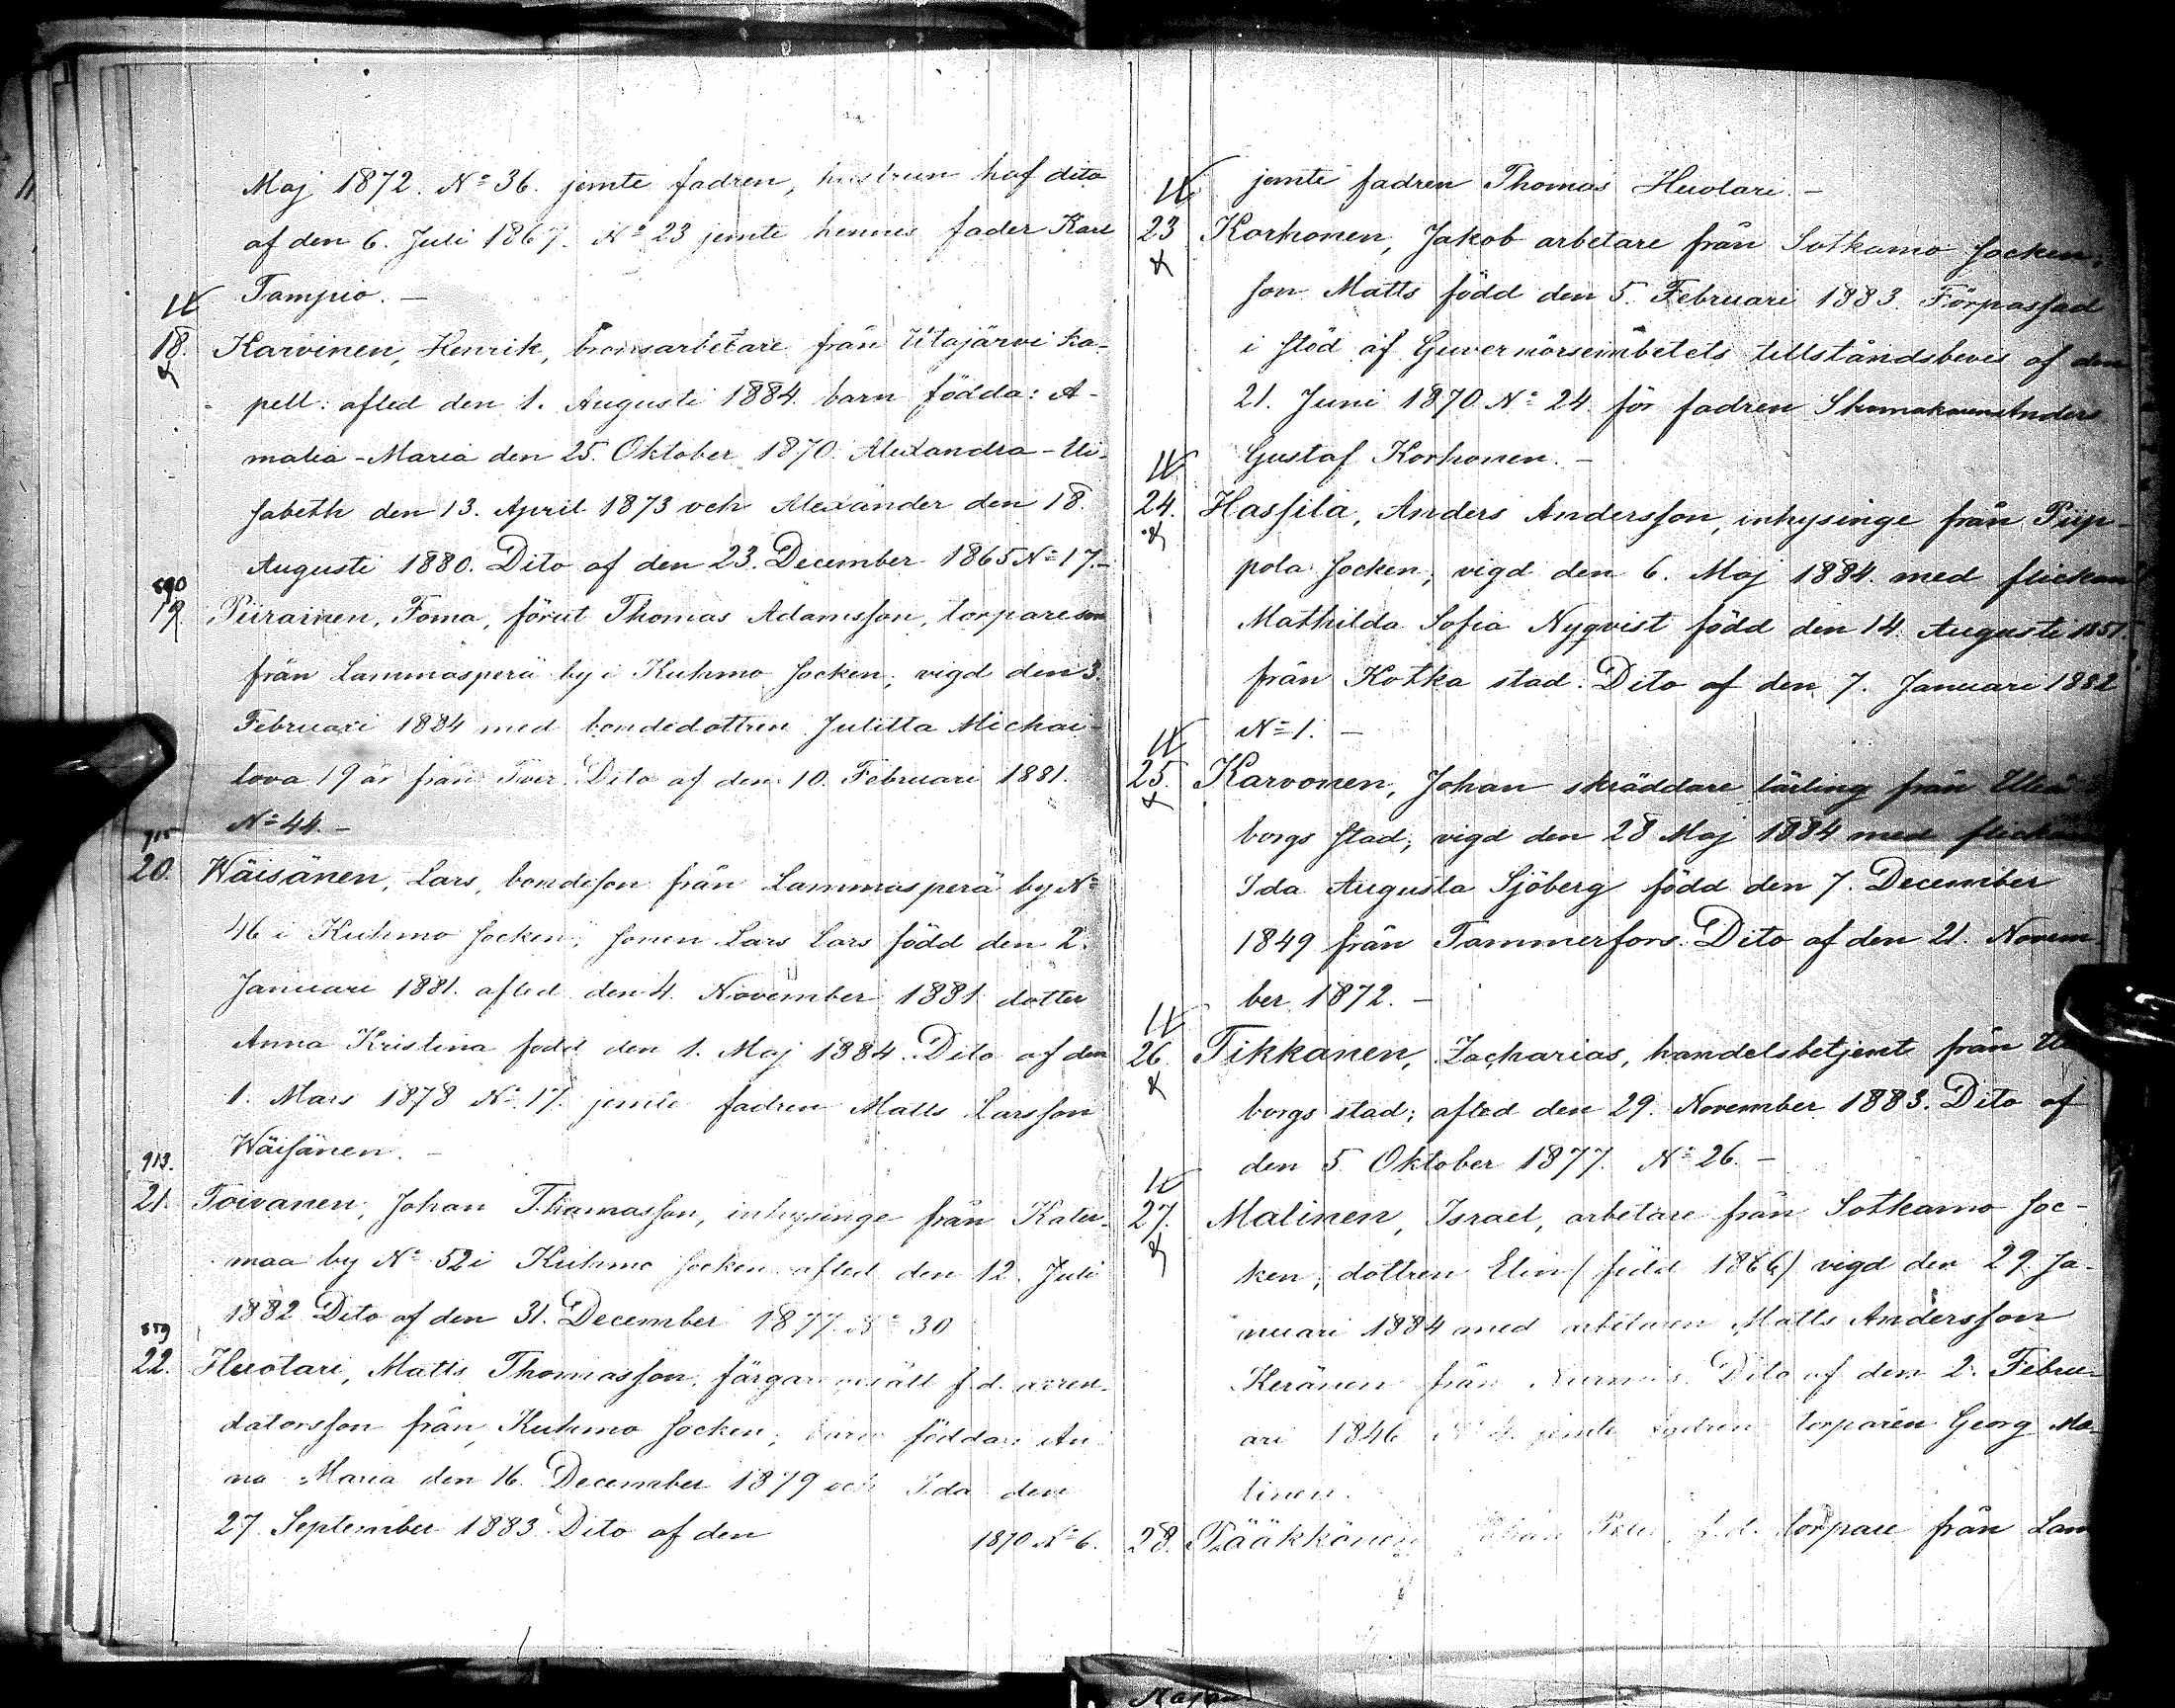 Maj 1872. No 36. jemte fadren, hustrun haf dito
af den 6. Juli 1867. No 23 jemte hennes fader Karl
Tampio. —
18. Karvinen, Henrik, bronsarbetare från Utajärvi ka-
pell: afled den 1. Augusti 1884. barn födda: A-
malia-Maria den 25. Oktober 1870. Alexandra-Eli-
sabeth den 13. April 1873 och Alexander den 18.
Augusti 1880. Dito af den 23. December 1865 No 17. —
890
19. Piirainen, Foma, förut Thomas Adamsson, torpareson
från Lammasperä by i Kuhmo socken; vigd den 3.
Februari 1884 med bondedottren Julitta Michai-
lova 19 år från Tver. Dito af den 10. Februari 1881.
No 44. —
915
20. Wäisänen, Lars, bondeson från Lammasperä by No
46 i Kuhmo socken; sonen Lars Lars född den 2.
Januari 1881. afled den 4. November 1881 dotter
Anna Kristina född den 1. Maj 1884. Dito af den
1. Mars 1878 No 17. jemte fadren Matts Larsson
Wäisänen. —
913.
21. Toivanen, Johan Thomasson, inhysinge från Kater-
maa by No 52 i Kuhmo socken afled den 12. Juli
1882 Dito af den 31. December 1877. No 30
859
22. Huotari, Matts Thomasson, färgaregesäll f.d. arren-
datorsson från Kuhmo socken; barn födda: An-
na Maria den 16. December 1879 och Ida den
27. September 1883. Dito af den 1870 No 6.
jemte fadren Thomas Huotari. —
23 Korhonen, Jakob arbetare från Sotkamo socken;
son Matts född den 5. Februari 1883. Förpassad
i stöd af Guvernörsembetets tillståndsbevis af den
21. Juni 1870 No 24 för fadren Skomakaren Anders
Gustaf Korhonen. —
24. Hassila, Anders Andersson, inhysinge från Piip-
pola socken; vigd den 6. Maj 1884. med flickan
Mathilda Sofia Nyqvist född den 14. Augusti 1857.
från Kotka stad. Dito af den 7. Januari 1882
No 1. —
25. Karvonen, Johan skräddare lärling från Uleå
borgs stad; vigd den 28 Maj 1884 med flickan
Ida Augusta Sjöberg född den 7. December
1849 från Tammerfors. Dito af den 21. Novem-
ber 1872. —
26. Tikkanen, Zacharias, handelsbetjent från Uleå
borgs stad; afled den 29. November 1883. Dito af
den 5. Oktober 1877. No 26. —
27. Malinen, Israel, arbetare från Sotkamo soc-
ken; dottren Elin (född 1866) vigd den 29. Ja-
nuari 1884 med arbetaren Matts Andersson
Keränen från Nurmis. Dito af den 2. Febru-
ari 1846 No 4. jemte fadren torparen Georg Ma-
linen.
28. Pääkkönen Johan Peter f.d. torpare från Lam